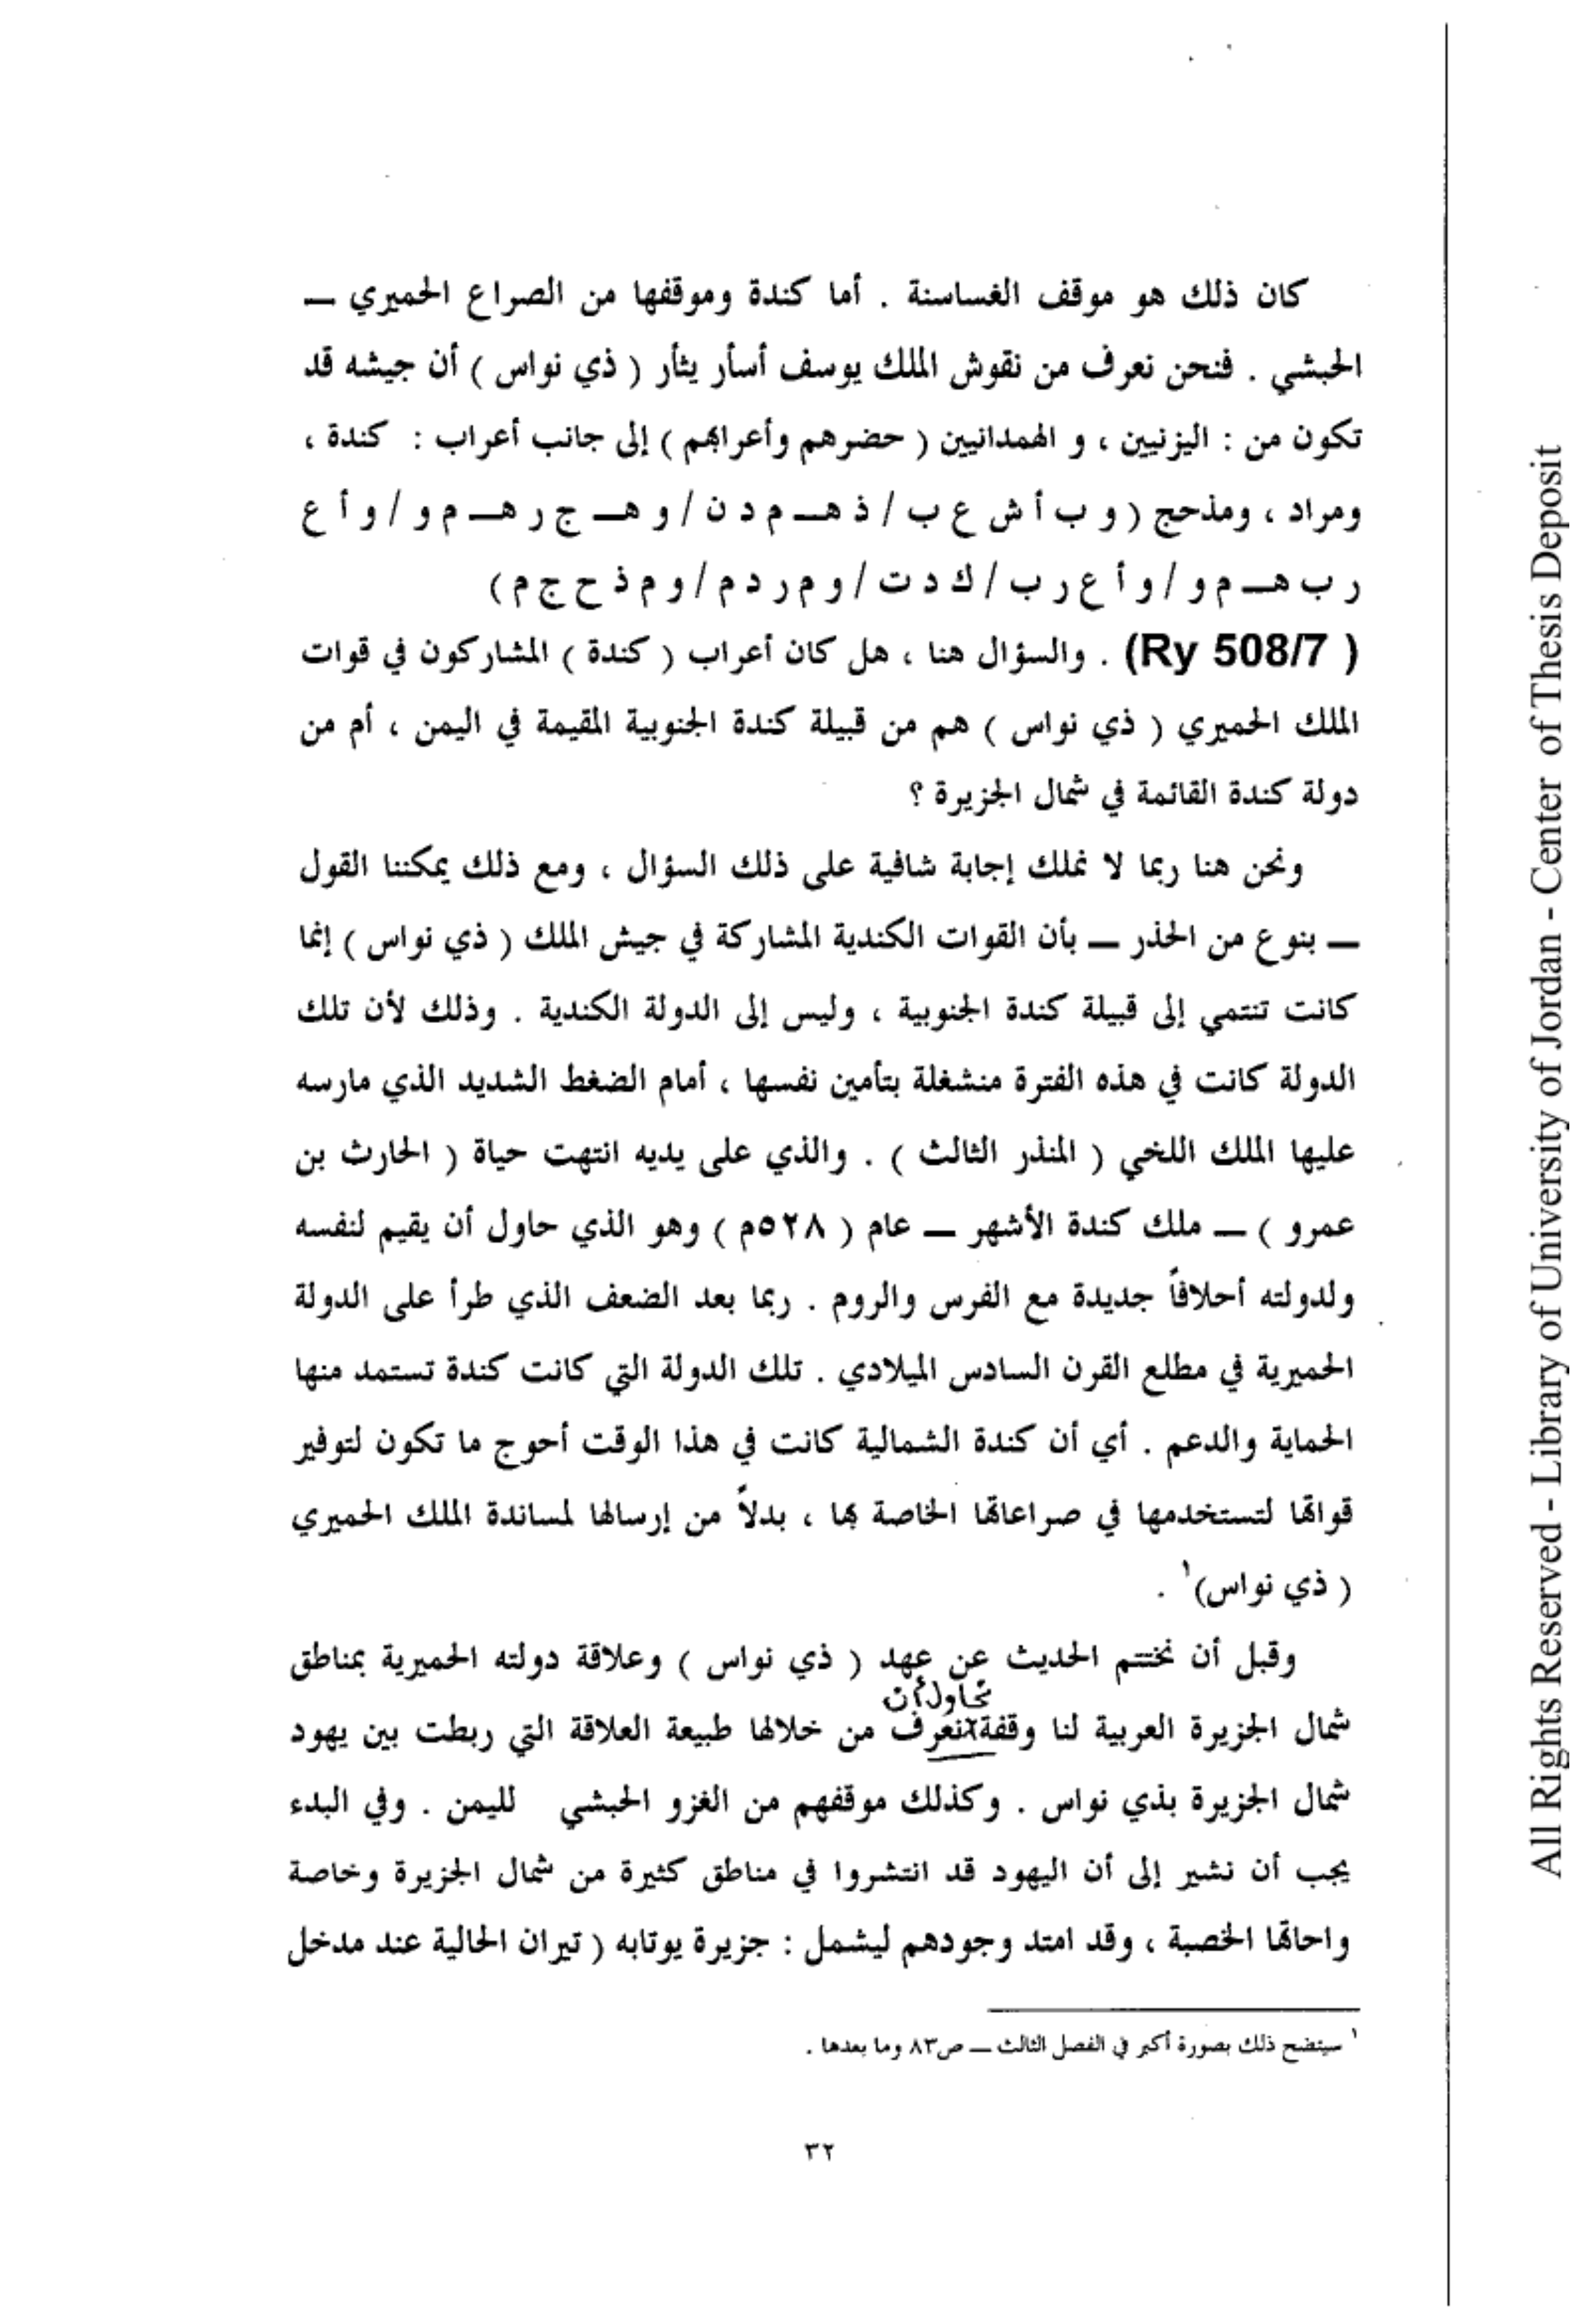 كان ذلك هو موقف الغساسنة . أما كندة وموقفها من الصراع الحميري ــ
الحبشي . فنحن نعرف من نقوش الملك يوسف أسأر يثأر ( ذي نواس ) أن جيشه قد
تكون من : اليزنيين ، و الهمدانيين ( حضرهم وأعرابهم ) إلى جانب أعراب : كندة ،
ومراد ، ومذحج ( و ب أ ش ع ب / ذ هـ م د ن / و هـ ج ر هـ م و / و أ ع
ر ب هـ م و / و أ ع ر ب / ك د ت / و م ر د م / و م ذ ح ج م )
( Ry 508/7) . والسؤال هنا ، هل كان أعراب ( كندة ) المشاركون في قوات
الملك الحميري ( ذي نواس ) هم من قبيلة كندة الجنوبية المقيمة في اليمن ، أم من
دولة كندة القائمة في شمال الجزيرة ؟
ونحن هنا ربما لا نملك إجابة شافية على ذلك السؤال ، ومع ذلك يمكننا القول
ــ بنوع من الحذر ــ بأن القوات الكندية المشاركة في جيش الملك ( ذي نواس ) إنما
كانت تنتمي إلى قبيلة كندة الجنوبية ، وليس إلى الدولة الكندية . وذلك لأن تلك
الدولة كانت في هذه الفترة منشغلة بتأمين نفسها ، أمام الضغط الشديد الذي مارسه
عليها الملك اللخي ( المنذر الثالث ) . والذي على يديه انتهت حياة ( الحارث بن
عمرو ) ــ ملك كندة الأشهر ــ عام ( ٥٢٨م ) وهو الذي حاول أن يقيم لنفسه
ولدولته أحلافاً جديدة مع الفرس والروم . ربما بعد الضعف الذي طرأ على الدولة
الحميرية في مطلع القرن السادس الميلادي . تلك الدولة التي كانت كندة تستمد منها
الحماية والدعم . أي أن كندة الشمالية كانت في هذا الوقت أحوج ما تكون لتوفير
قواتها لتستخدمها في صراعاتها الخاصة بها ، بدلاً من إرسالها لمساندة الملك الحميري
( ذي نواس)١ .
وقبل أن نختتم الحديث عن عهد ( ذي نواس ) وعلاقة دولته الحميرية بمناطق
نحاول أن
شمال الجزيرة العربية لنا وقفة نعرف من خلالها طبيعة العلاقة التي ربطت بين يهود
شمال الجزيرة بذي نواس . وكذلك موقفهم من الغزو الحبشي لليمن . وفي البدء
يجب أن نشير إلى أن اليهود قد انتشروا في مناطق كثيرة من شمال الجزيرة وخاصة
واحاتها الخصبة ، وقد امتد وجودهم ليشمل : جزيرة يوتابه ( تيران الحالية عند مدخل
١ سيتضح ذلك بصورة أكبر في الفصل الثالث ــ ص٨٣ وما بعدها .
٣٢
All Rights Reserved - Library of University of Jordan - Center of Thesis Deposit